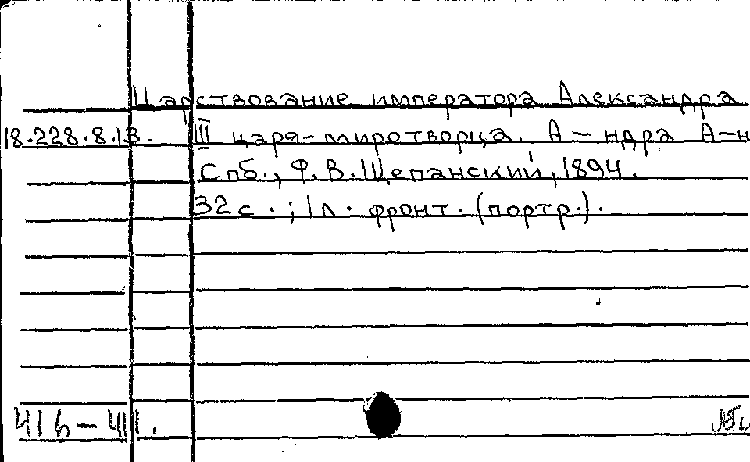 Царствование императора Александра
18.228.8.13. III царя-миротворца. А-ндра А-н
Спб., Ф. В. Щепанский, 1894.
32 с.; 1 л. фронт. (портр.).